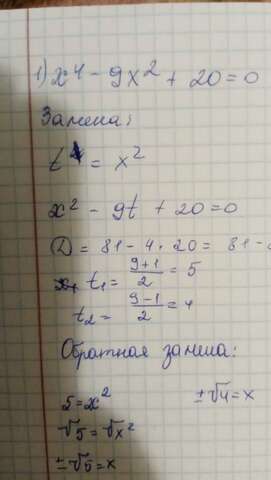 1) x⁴ - 9x² + 20 = 0
Замена:
t = x²
x² - 9t + 20 = 0
D = 81 - 4 · 20 = 81 -
t₁ = (9+1)/2 = 5
t₂ = (9-1)/2 = 4
Обратная замена:
5 = x² ±√4 = x
√5 = √x²
±√5 = x